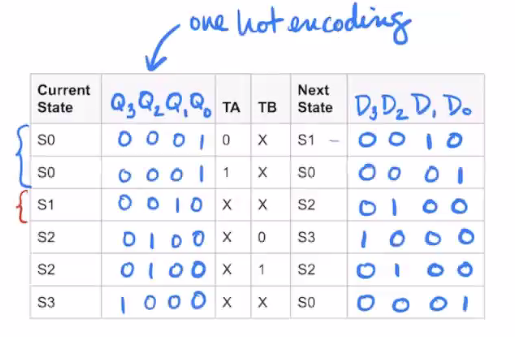 one hot encoding
Current State Q₃ Q₂ Q₁ Q₀ TA TB Next State D₃ D₂ D₁ D₀
S0 0 0 0 1 0 X S1 – 0 0 1 0
S0 0 0 0 1 1 X S0 0 0 0 1
S1 0 0 1 0 X X S2 0 1 0 0
S2 0 1 0 0 X 0 S3 1 0 0 0
S2 0 1 0 0 X 1 S2 0 1 0 0
S3 1 0 0 0 X X S0 0 0 0 1